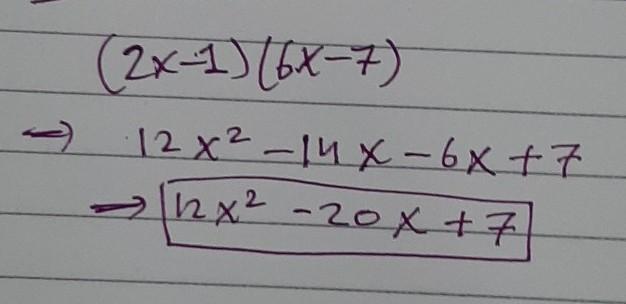 (2x-1)(6x-7)
→ 12x² -14x -6x +7
→ 12x² -20x +7